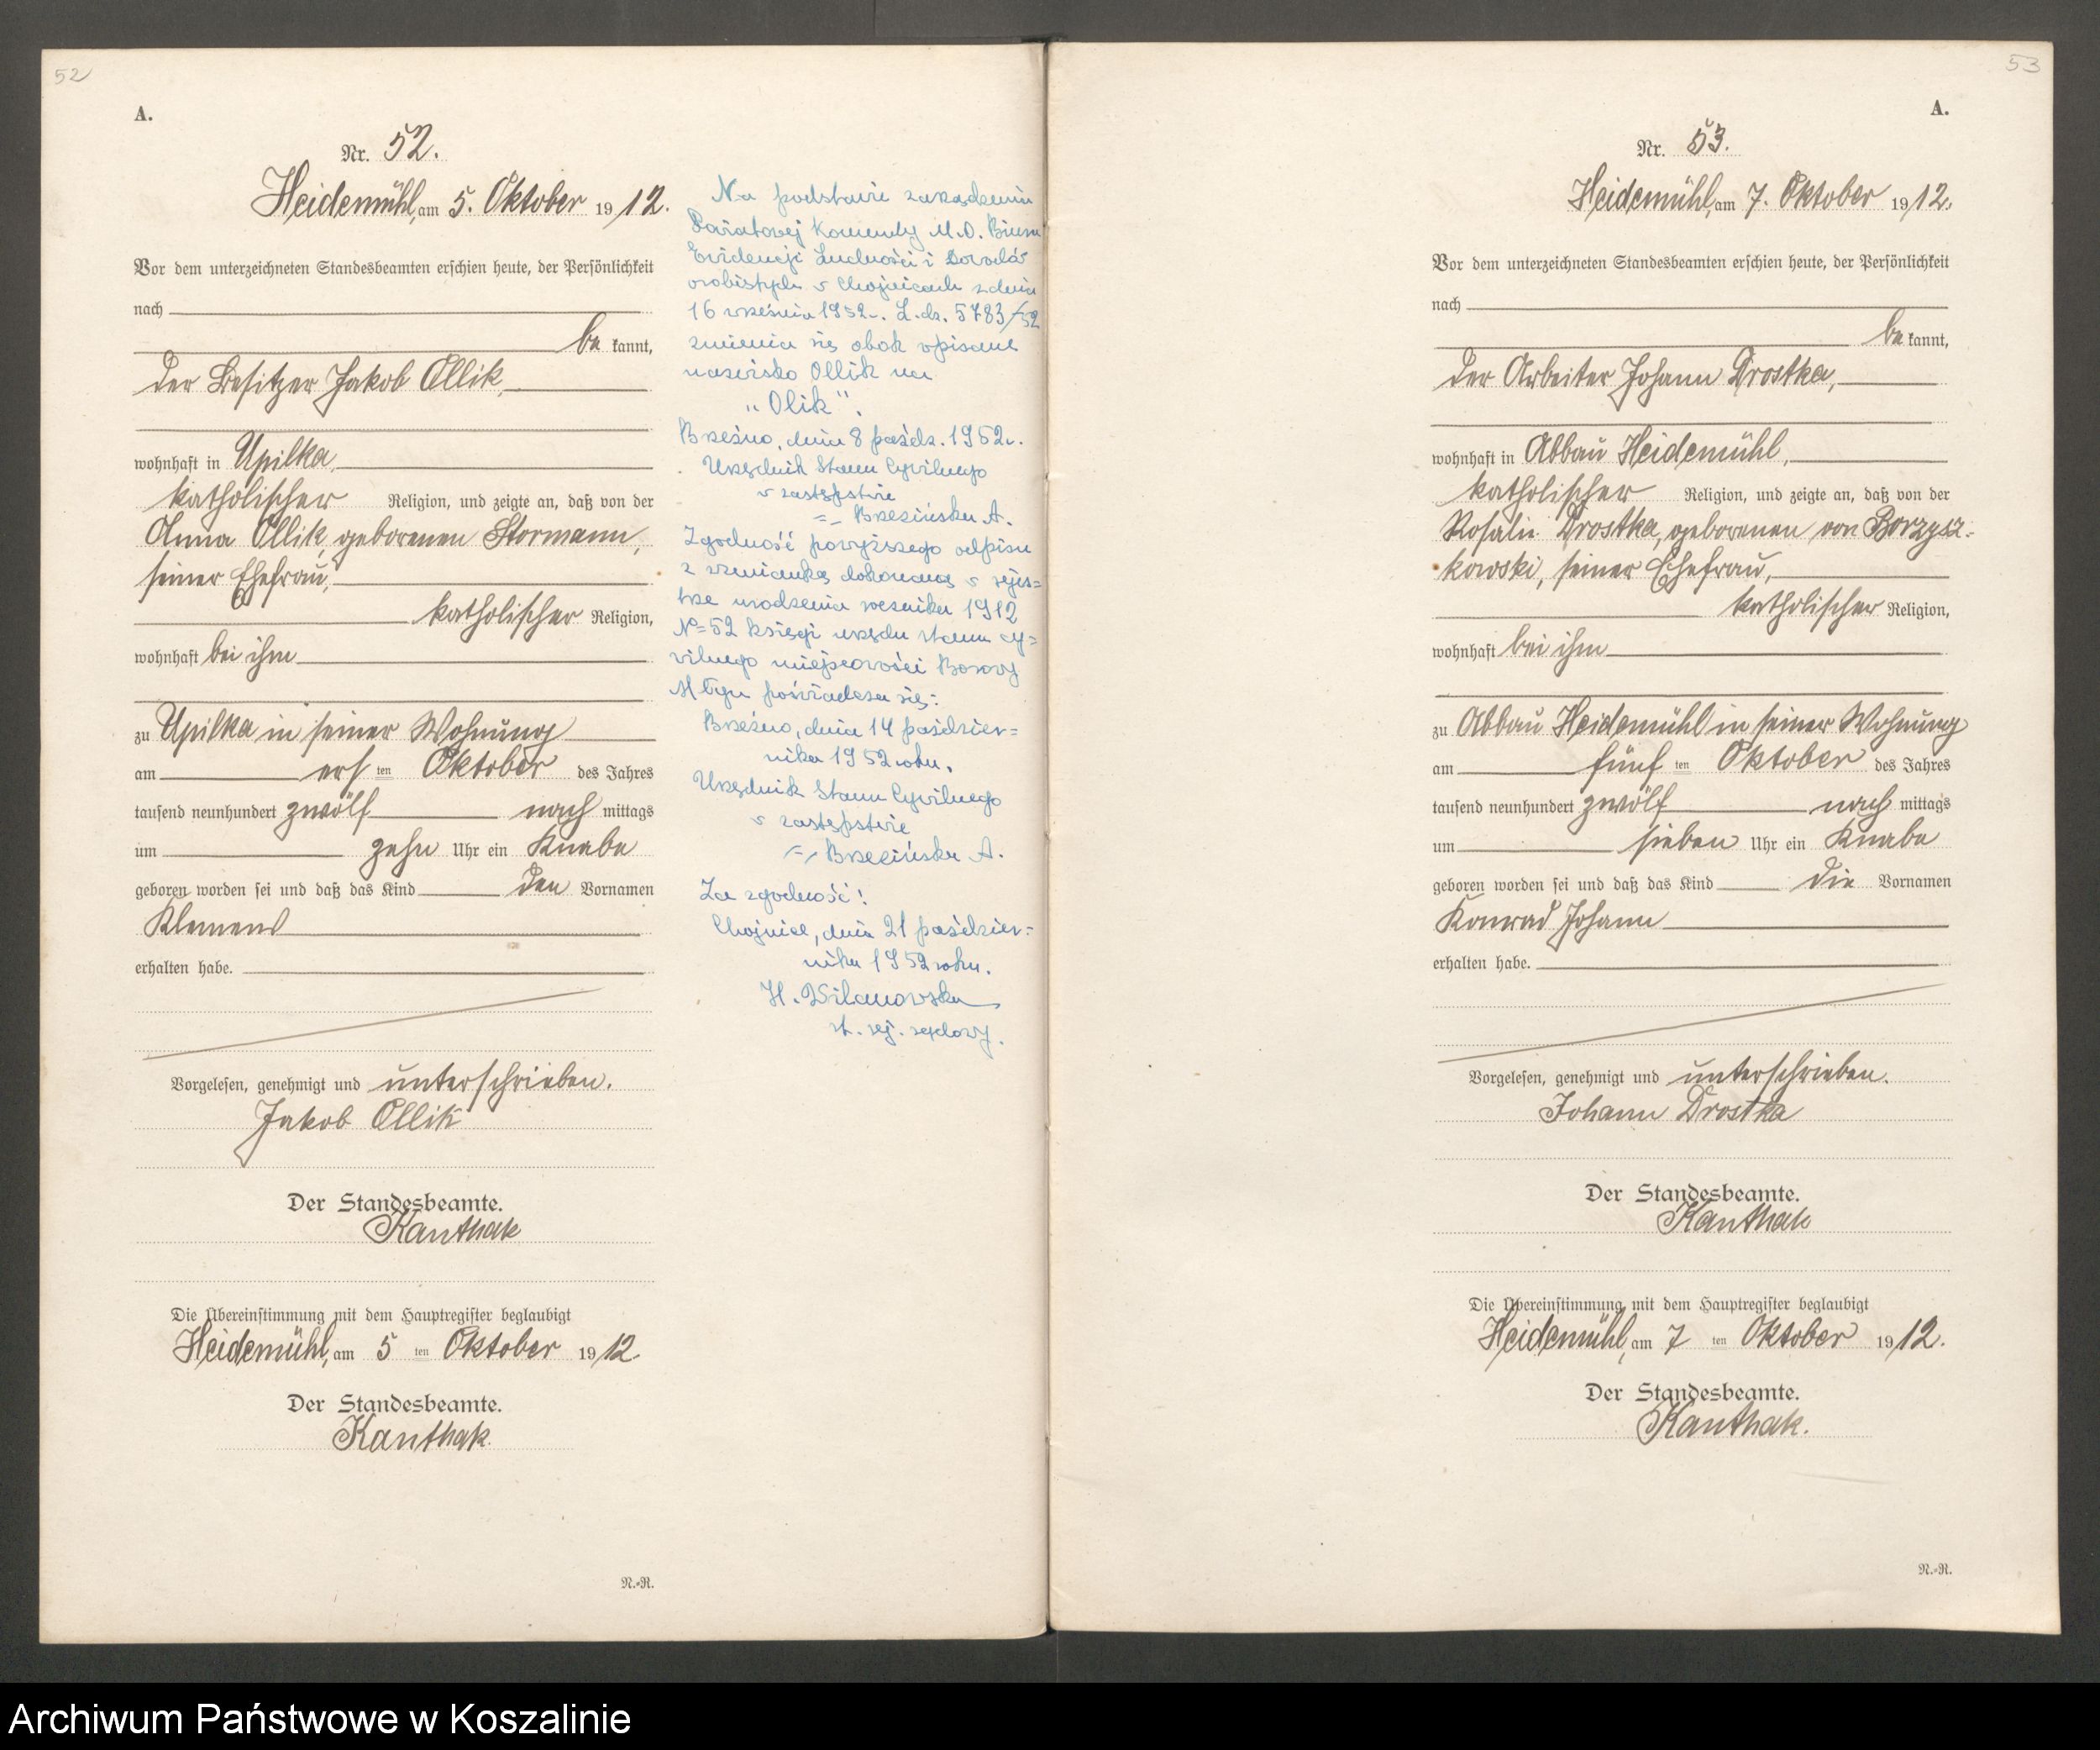 52
A.
Nr. 52.
Heidemühl, am 5. Oktober 1912.
Vor dem unterzeichneten Standesbeamten erschien heute, der Persönlichkeit
nach
be kannt,
der Besitzer Jakob Ollik,
wohnhaft in Upilka,
katholischer Religion, und zeigte an, daß von der
Anna Ollik, geborenen Stormann,
seiner Ehefrau,
katholischer Religion,
wohnhaft bei ihm
zu Upilka in seiner Wohnung
am ersten Oktober des Jahres
tausend neunhundert zwölf nach mittags
um zehn Uhr ein Knabe
geboren worden sei und daß das Kind den Vornamen
Klemens
erhalten habe.
Vorgelesen, genehmigt und unterschrieben.
Jakob Ollik
Der Standesbeamte.
Kanthak
Die Übereinstimmung mit dem Hauptregister beglaubigt
Heidemühl, am 5 ten Oktober 1912.
Der Standesbeamte.
Kanthak.
N.-R.
Na podstawie zarządzenia
Powiatowej Komendy M.O. Biura
Ewidencji Ludności i Dowodów
osobistych w Chojnicach z dnia
16 września 1952r. L.dz. 5783/52
zmienia się obok wpisane
nazwisko Ollik na
"Olik".
Brzeźno, dnia 8 paźdz. 1952r.
Urzędnik Stanu Cywilnego
w zastępstwie
=-Brzezińska A.
Zgodność powyższego odpisu
z wzmianką dokonaną w rejes=
trze urodzenia rocznika 1912
No=52 księgi urzędu stanu cy=
wilnego miejscowości Borowy
Młyn poświadcza się:
Brzeźno, dnia 14 paździer=
nika 1952 roku.
Urzędnik Stanu Cywilnego
w zastępstwie
=-Brzezińska A.
Za zgodność!
Chojnice, dnia 21 paździer=
nika 1952 roku.
H. Wilanowska
st. rej. sądowy.
53
A.
Nr. 53.
Heidemühl, am 7. Oktober 1912.
Vor dem unterzeichneten Standesbeamten erschien heute, der Persönlichkeit
nach
be kannt,
der Arbeiter Johann Drostka,
wohnhaft in Abbau Heidemühl,
katholischer Religion, und zeigte an, daß von der
Rosalie Drostka, geborenen von Borzysz=
kowski, seiner Ehefrau,
katholischer Religion,
wohnhaft bei ihm
zu Abbau Heidemühl in seiner Wohnung
am fünf ten Oktober des Jahres
tausend neunhundert zwölf nach mittags
um sieben Uhr ein Knabe
geboren worden sei und daß das Kind die Vornamen
Konrad Johann
erhalten habe.
Vorgelesen, genehmigt und unterschrieben.
Johann Drostka
Der Standesbeamte.
Kanthak
Die Übereinstimmung mit dem Hauptregister beglaubigt
Heidemühl, am 7 ten Oktober 1912.
Der Standesbeamte.
Kanthak.
N.-R.
Archiwum Państwowe w Koszalinie